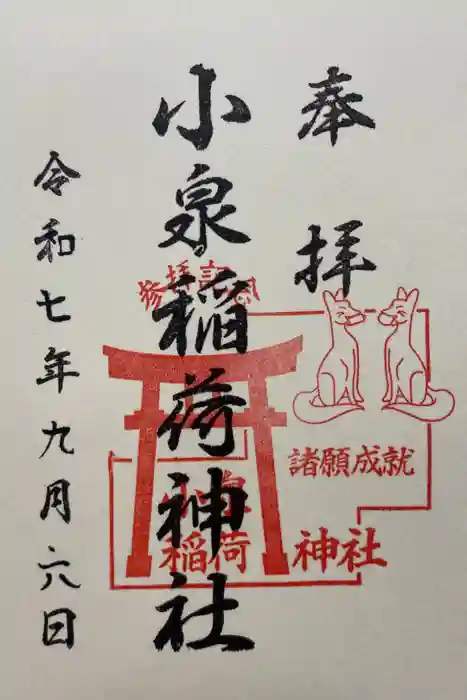 奉拝
小泉稲荷神社
令和七年九月六日
参拝記念
諸願成就
小泉
稲荷神社